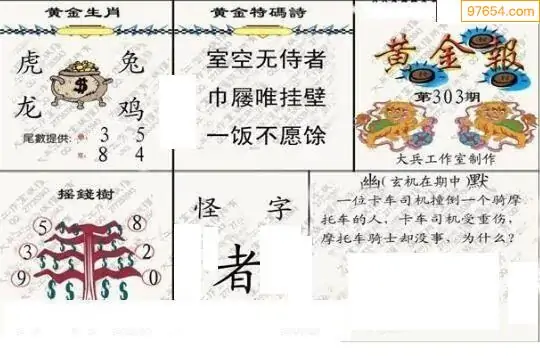 97654.com
黄金生肖
虎 兔
龙 鸡
$
尾數提供: 3 5
8 4
黄金特碼詩
室空无侍者
巾屦唯挂壁
一饭不愿馀
黄金報
第303期
大兵工作室制作
摇錢樹
5 8
3 2
9 0
怪 字
者
幽(玄机在期中 默
一位卡车司机撞倒一个骑摩
托车的人，卡车司机受重伤，
摩托车骑士却没事，为什么?